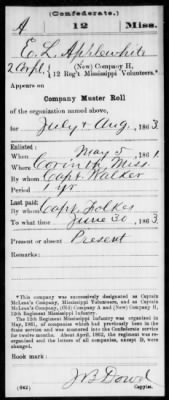 (Confederate.)
A 12 Miss.
E. L. Applewhite
2 Corpl, (New) Company H,
12 Reg't Mississippi Volunteers.*
Appears on
Company Muster Roll
of the organization named above,
for July & Aug, 1863
Enlisted:
When May 5, 1861
Where Corinth Miss.
By whom Capt Walker
Period 1 yr
Last paid:
By whom Capt. Folkes
To what time June 30, 1863
Present or absent Present
Remarks:
*This company was successively designated as Captain
McLean's Company, Mississippi Volunteers, and as Captain
McLean's Company, (Old) Company A and (New) Company H,
12th Regiment Mississippi Infantry.
The 12th Regiment Mississippi Infantry was organized in
May, 1861, of companies which had previously been in the
State service and was mustered into the Confederate service
for twelve months. About April, 1862, the regiment was re-
organized and the letters of all companies, except D, were
changed.
Book mark:
J B Dowd
(642) Copyist.